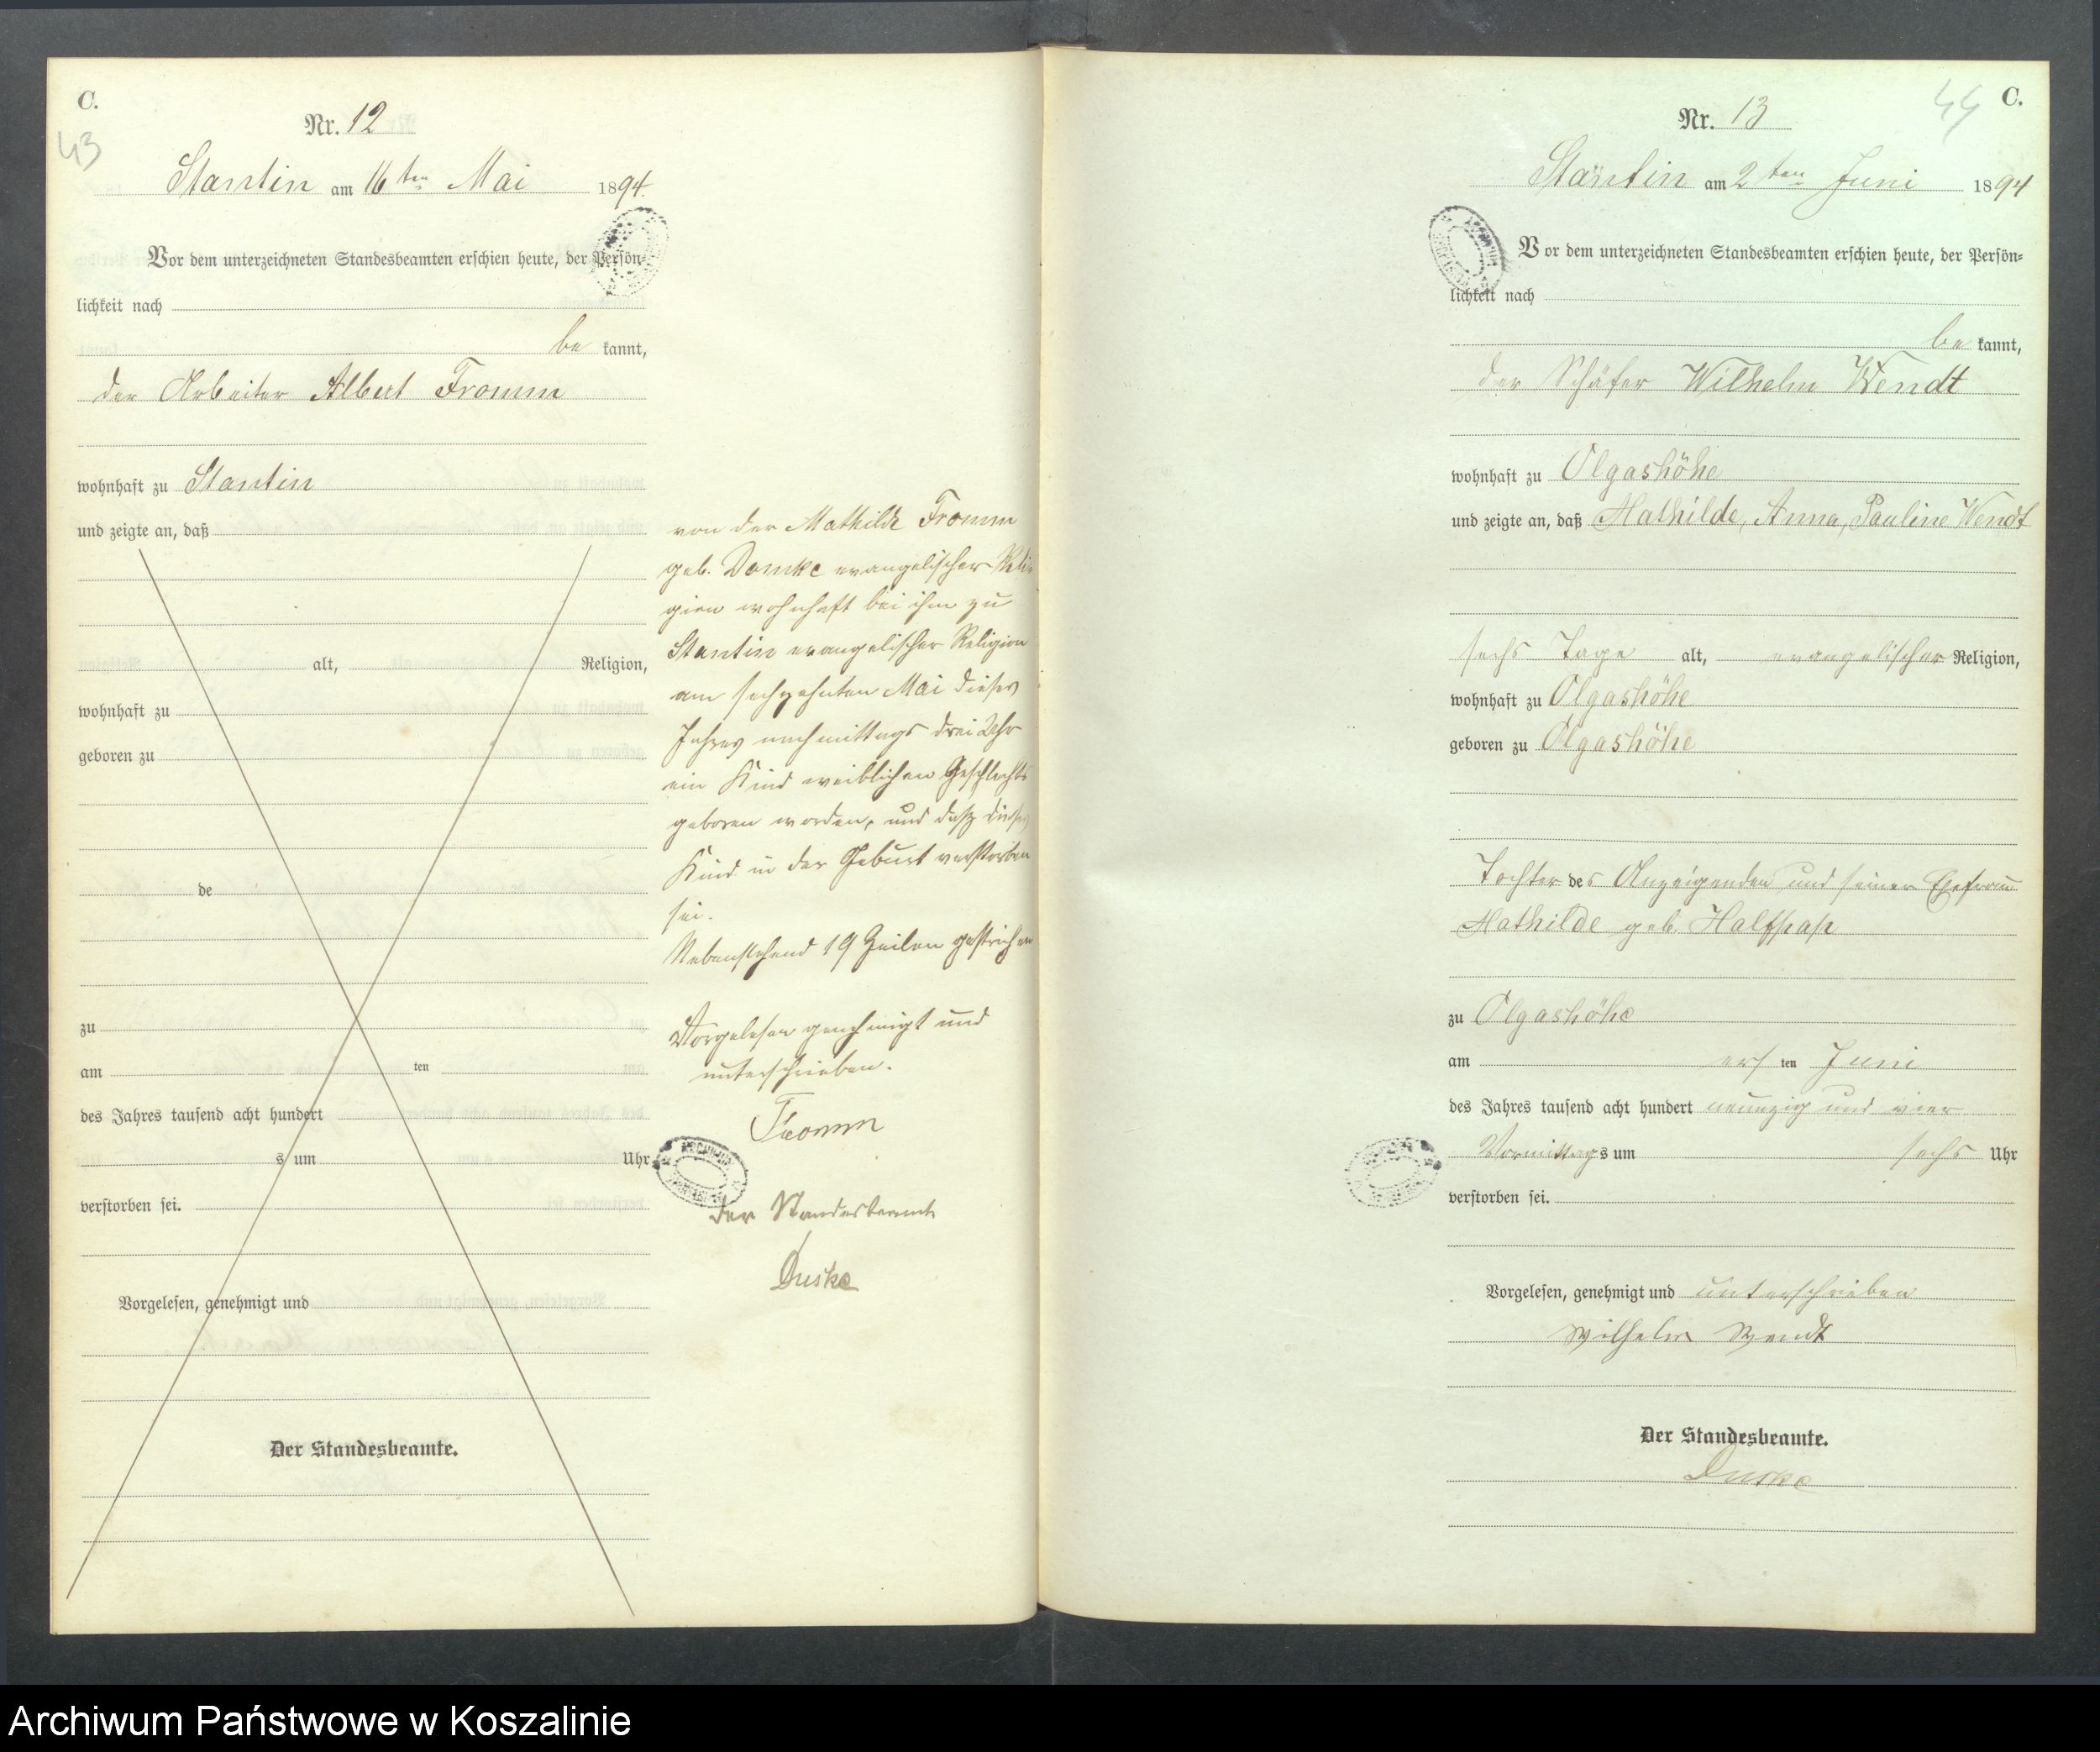 C.
43
Nr. 12
Stantin am 16ten Mai 1894.
Vor dem unterzeichneten Standesbeamten erschien heute, der Persön-
lichkeit nach
be kannt,
der Arbeiter Albert Fromm
wohnhaft zu Stantin
und zeigte an, daß
alt, Religion,
wohnhaft zu
geboren zu
de
zu
am ten
des Jahres tausend acht hundert
s um Uhr
verstorben sei.
Vorgelesen, genehmigt und
Der Standesbeamte.
von der Mathilde Fromm
geb. Damke evangelischer Reli-
gion wohnhaft bei ihm zu
Stantin evangelischer Religion
am sechzehnten Mai dieses
Jahres nachmittags drei Uhr
ein Kind weiblichen Geschlechts
geboren worden, und daß dieses
Kind in der Geburt verstorben
sei.
Nebenstehend 19 Zeilen gestrichen
Vorgelesen genehmigt und
unterschrieben.
Fromm
der Standesbeamte
Duske
C.
44
Nr. 13
Stantin am 2ten Juni 1894
Vor dem unterzeichneten Standesbeamten erschien heute, der Persön-
lichkeit nach
be kannt,
der Schäfer Wilhelm Wendt
wohnhaft zu Olgashöhe
und zeigte an, daß Mathilde, Anna, Pauline Wendt
sechs Tage alt, evangelischer Religion,
wohnhaft zu Olgashöhe
geboren zu Olgashöhe
Tochter des Anzeigenden und seiner Ehefrau
Mathilde geb. Halfpap
zu Olgashöhe
am ers ten Juni
des Jahres tausend acht hundert neunzig und vier
Vormittags um sechs Uhr
verstorben sei.
Vorgelesen, genehmigt und unterschrieben
Wilhelm Wendt
Der Standesbeamte.
Duske
Archiwum Państwowe w Koszalinie